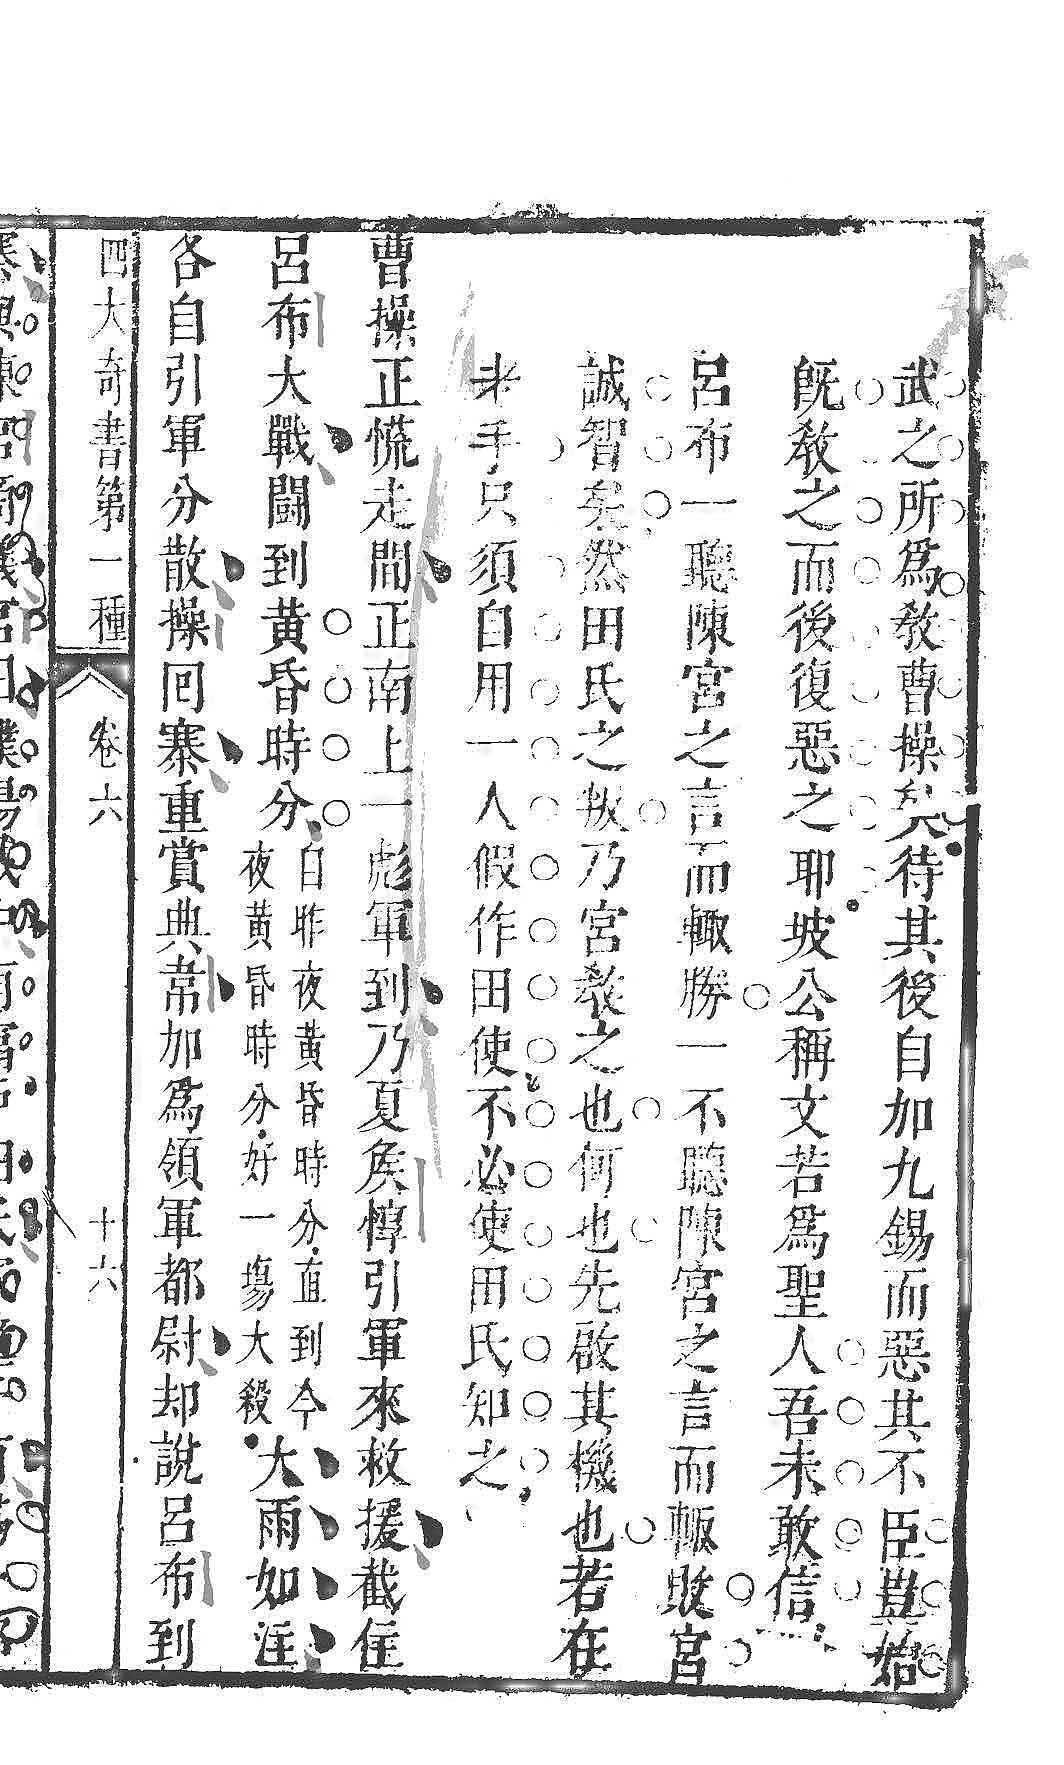 武之所爲教曹操矣待其後自加九錫而惡其不臣豈始
旣教之而後復惡之耶坡公稱文若爲聖人吾未敢信
呂布一聽陳宮之言而輙勝一不聽陳宮之言而輙敗宮
誠智矣然田氏之叛乃宮教之也何也先啟其機也若在
老手只須自用一人假作田使不必使田氏知之
曹操正慌走間正南上一彪軍到乃夏侯惇引軍來救援截住
呂布大戰鬪到黃昏時分
白昨夜黃昏時分直到今
夜黃昏時分好一塲大殺
大雨如注
各自引軍分散操囘寨重賞典韋加爲領軍都尉却說呂布到
四大奇書第一種 卷六 十六